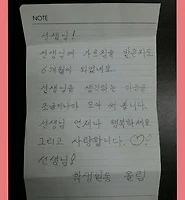 NOTE
선생님!
선생님께 가르침을 받은지도
6개월이 되었네요.
선생님을 생각하는 마음을
조금이나마 모아 써 봅니다.
선생님 언제나 행복하세요
그리고 사랑합니다. ♡
선생님!
올림